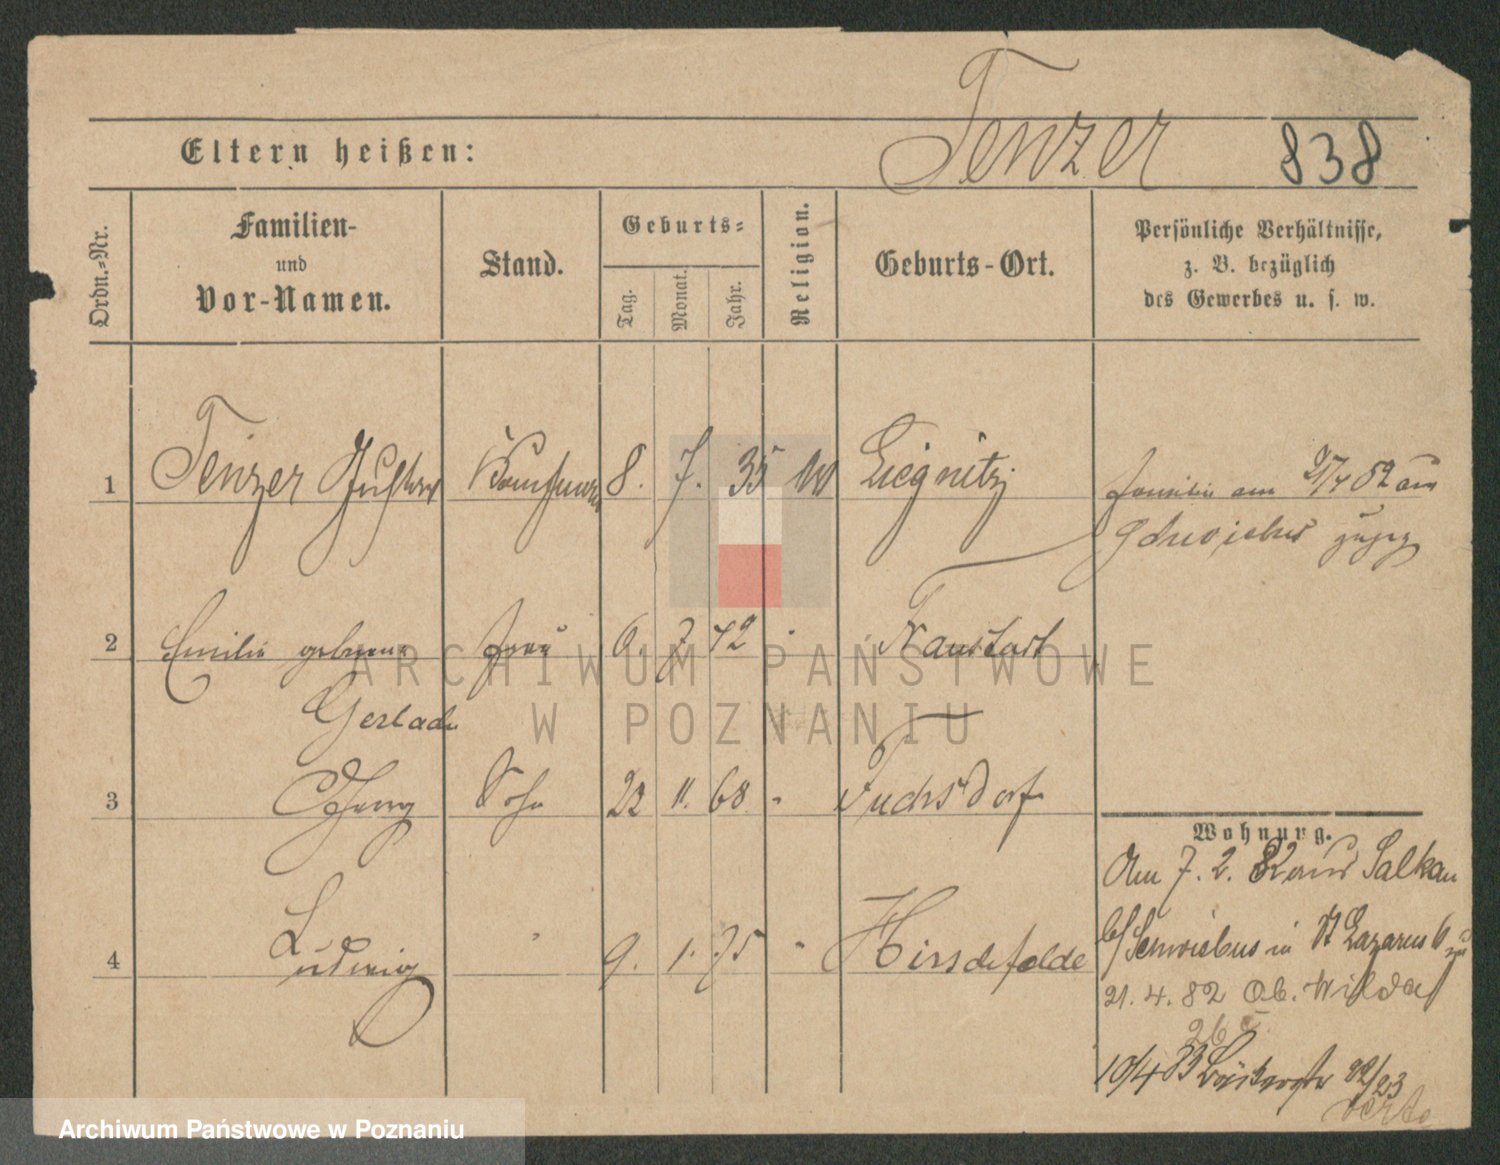 Tenzer 838
Eltern heißen:
Ordn.-Nr.
Familien-
und
Vor-Namen.
Stand.
Geburts-
Tag.
Monat.
Jahr.
Religion.
Geburts-Ort.
Persönliche Verhältnisse,
z. B. bezüglich
des Gewerbes u. s. w.
1 Tenzer Gustav 8. 7. 35 Liegnitz
Familie am 21/4 82 aus
Schwiebus zugez
2 Emilie geborene Frau 6. 7. 42
Gerlach
3 Georg Sohn 22 11. 68 Fuchsdorf
4 Ludwig " 9. 1. 75 " Hirschfelde
Wohnung.
Am 7. 2. 82 aus Salkau
b/Schwiebus in St Lazarus 6 zu
21. 4. 82 Ob. Wilda
26
10/4 83 22/23
verte
ARCHIWUM PAŃSTWOWE
W POZNANIU
Archiwum Państwowe w Poznaniu